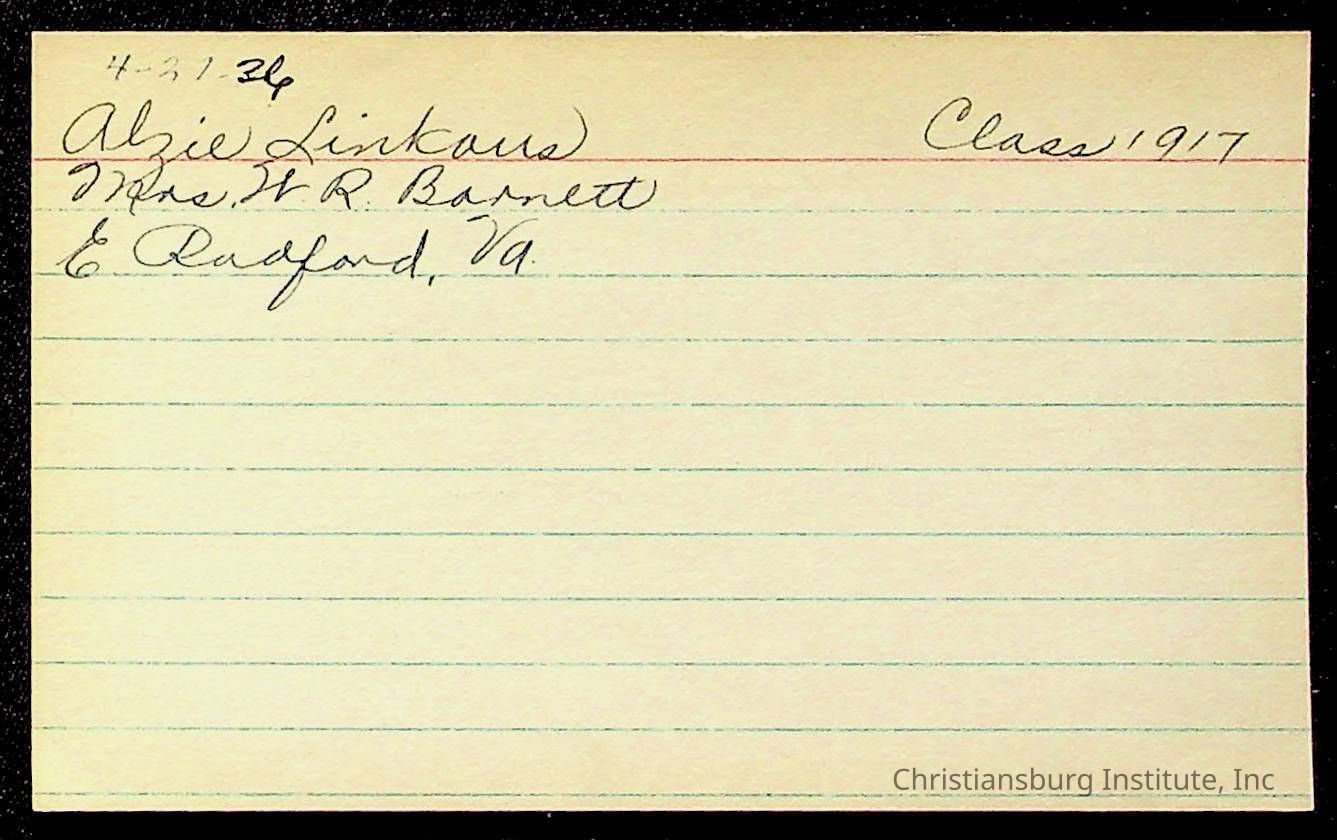 4-21-36
Alzie Linkous Class 1917
Mrs. W R. Barnett
E Radford, Va.
Christiansburg Institute, Inc